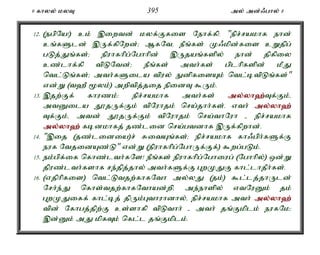 8 காலம் மலவு 395 அல் அன்ஃபால் 8
12. (நபியே) உம் இறைவன் மலக்குகளை நோக்கி: "நிச்சயமாக நான்
உங்களுடன் இருக்கிறேன்; ஆகவே, நீங்கள் முஃமின்களை உறுதிப்
படுத்துங்கள்; நிராகரிப்போரின் இருதயங்களில் நான் திகிலை
உண்டாக்கி விடுவேன்; நீங்கள் அவர்கள் பிடரிகளின் மீது
வெட்டுங்கள்; அவர்களுடைய விரல் நுனிகளையும் வெட்டிவிடுங்கள்"
என்று (வஹீ மூலம்) அறிவித்ததை நினைவு கூரும்.
13. இதற்குக் காரணம்: நிச்சயமாக அவர்கள் அல்லாஹ்வுக்கும்,
அவனுடைய தூதருக்கும் விரோதம் செய்தார்கள். எவர் அல்லாஹ்
வுக்கும், அவன் தூதருக்கும் விரோதம் செய்வாரோ - நிச்சயமாக
அல்லாஹ் கடினமாகத் தண்டனை செய்பவனாக இருக்கிறான்.
14. "இதை (தண்டனையை)ச் சுவையுங்கள்; நிச்சயமாக காஃபிர்களுக்கு
நரக வேதனையுண்டு" என்று (நிராகரிப்போருக்குக்) கூறப்படும்.
15. நம்பிக்கை கொண்டவர்களே! நீங்கள் நிராகரிப்போரைப் (போரில்) ஒன்று
திரண்டவர்களாக சந்தித்தால் அவர்களுக்கு புறமுதுகு காட்டாதீர்கள்.
16. (எதிரிகளை) வெட்டுவதற்காகவோ அல்லது (தம்) கூட்டத்தாருடன்
சேர்ந்து கொள்வதற்காகவோயன்றி, அந்நாளில் எவரேனும் தம்
புறமுதுகைக் காட்டித் திரும்புவாரானால், நிச்சயமாக அவர் அல்லாஹ்
வின் கோபத்திற்கு உள்ளாகி விடுவார் - அவர் தங்குமிடம் நரகமே;
இன்னும் அது மிகவும் கெட்ட தங்குமிடம்.